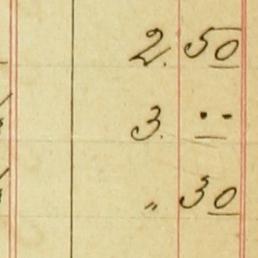 2. 50
3. ..
„ 30